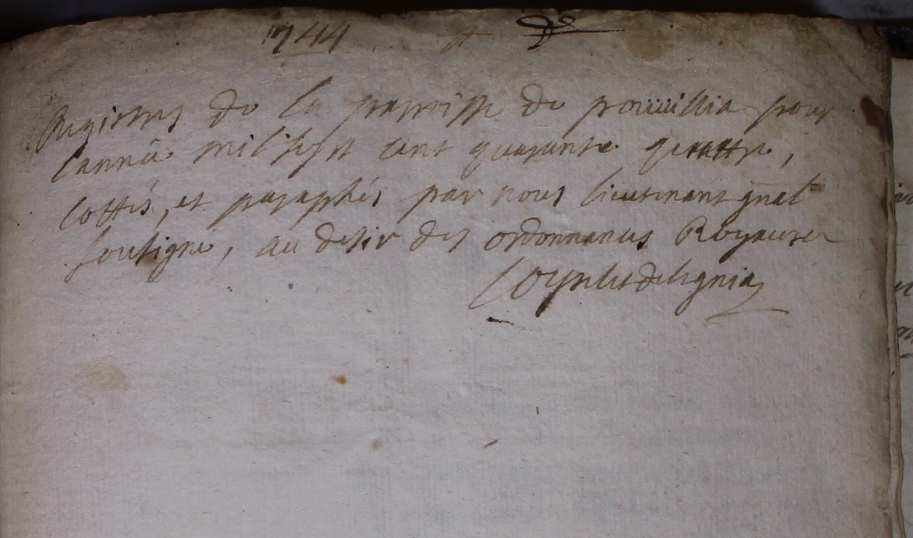 1744
Registres de la parroisse de pouuillia pour
lannée mil sept cent quarante quattre,
Cottés, et paraphés par nous lieutenant gnal
soussigne, au desir des ordonnances Royaux